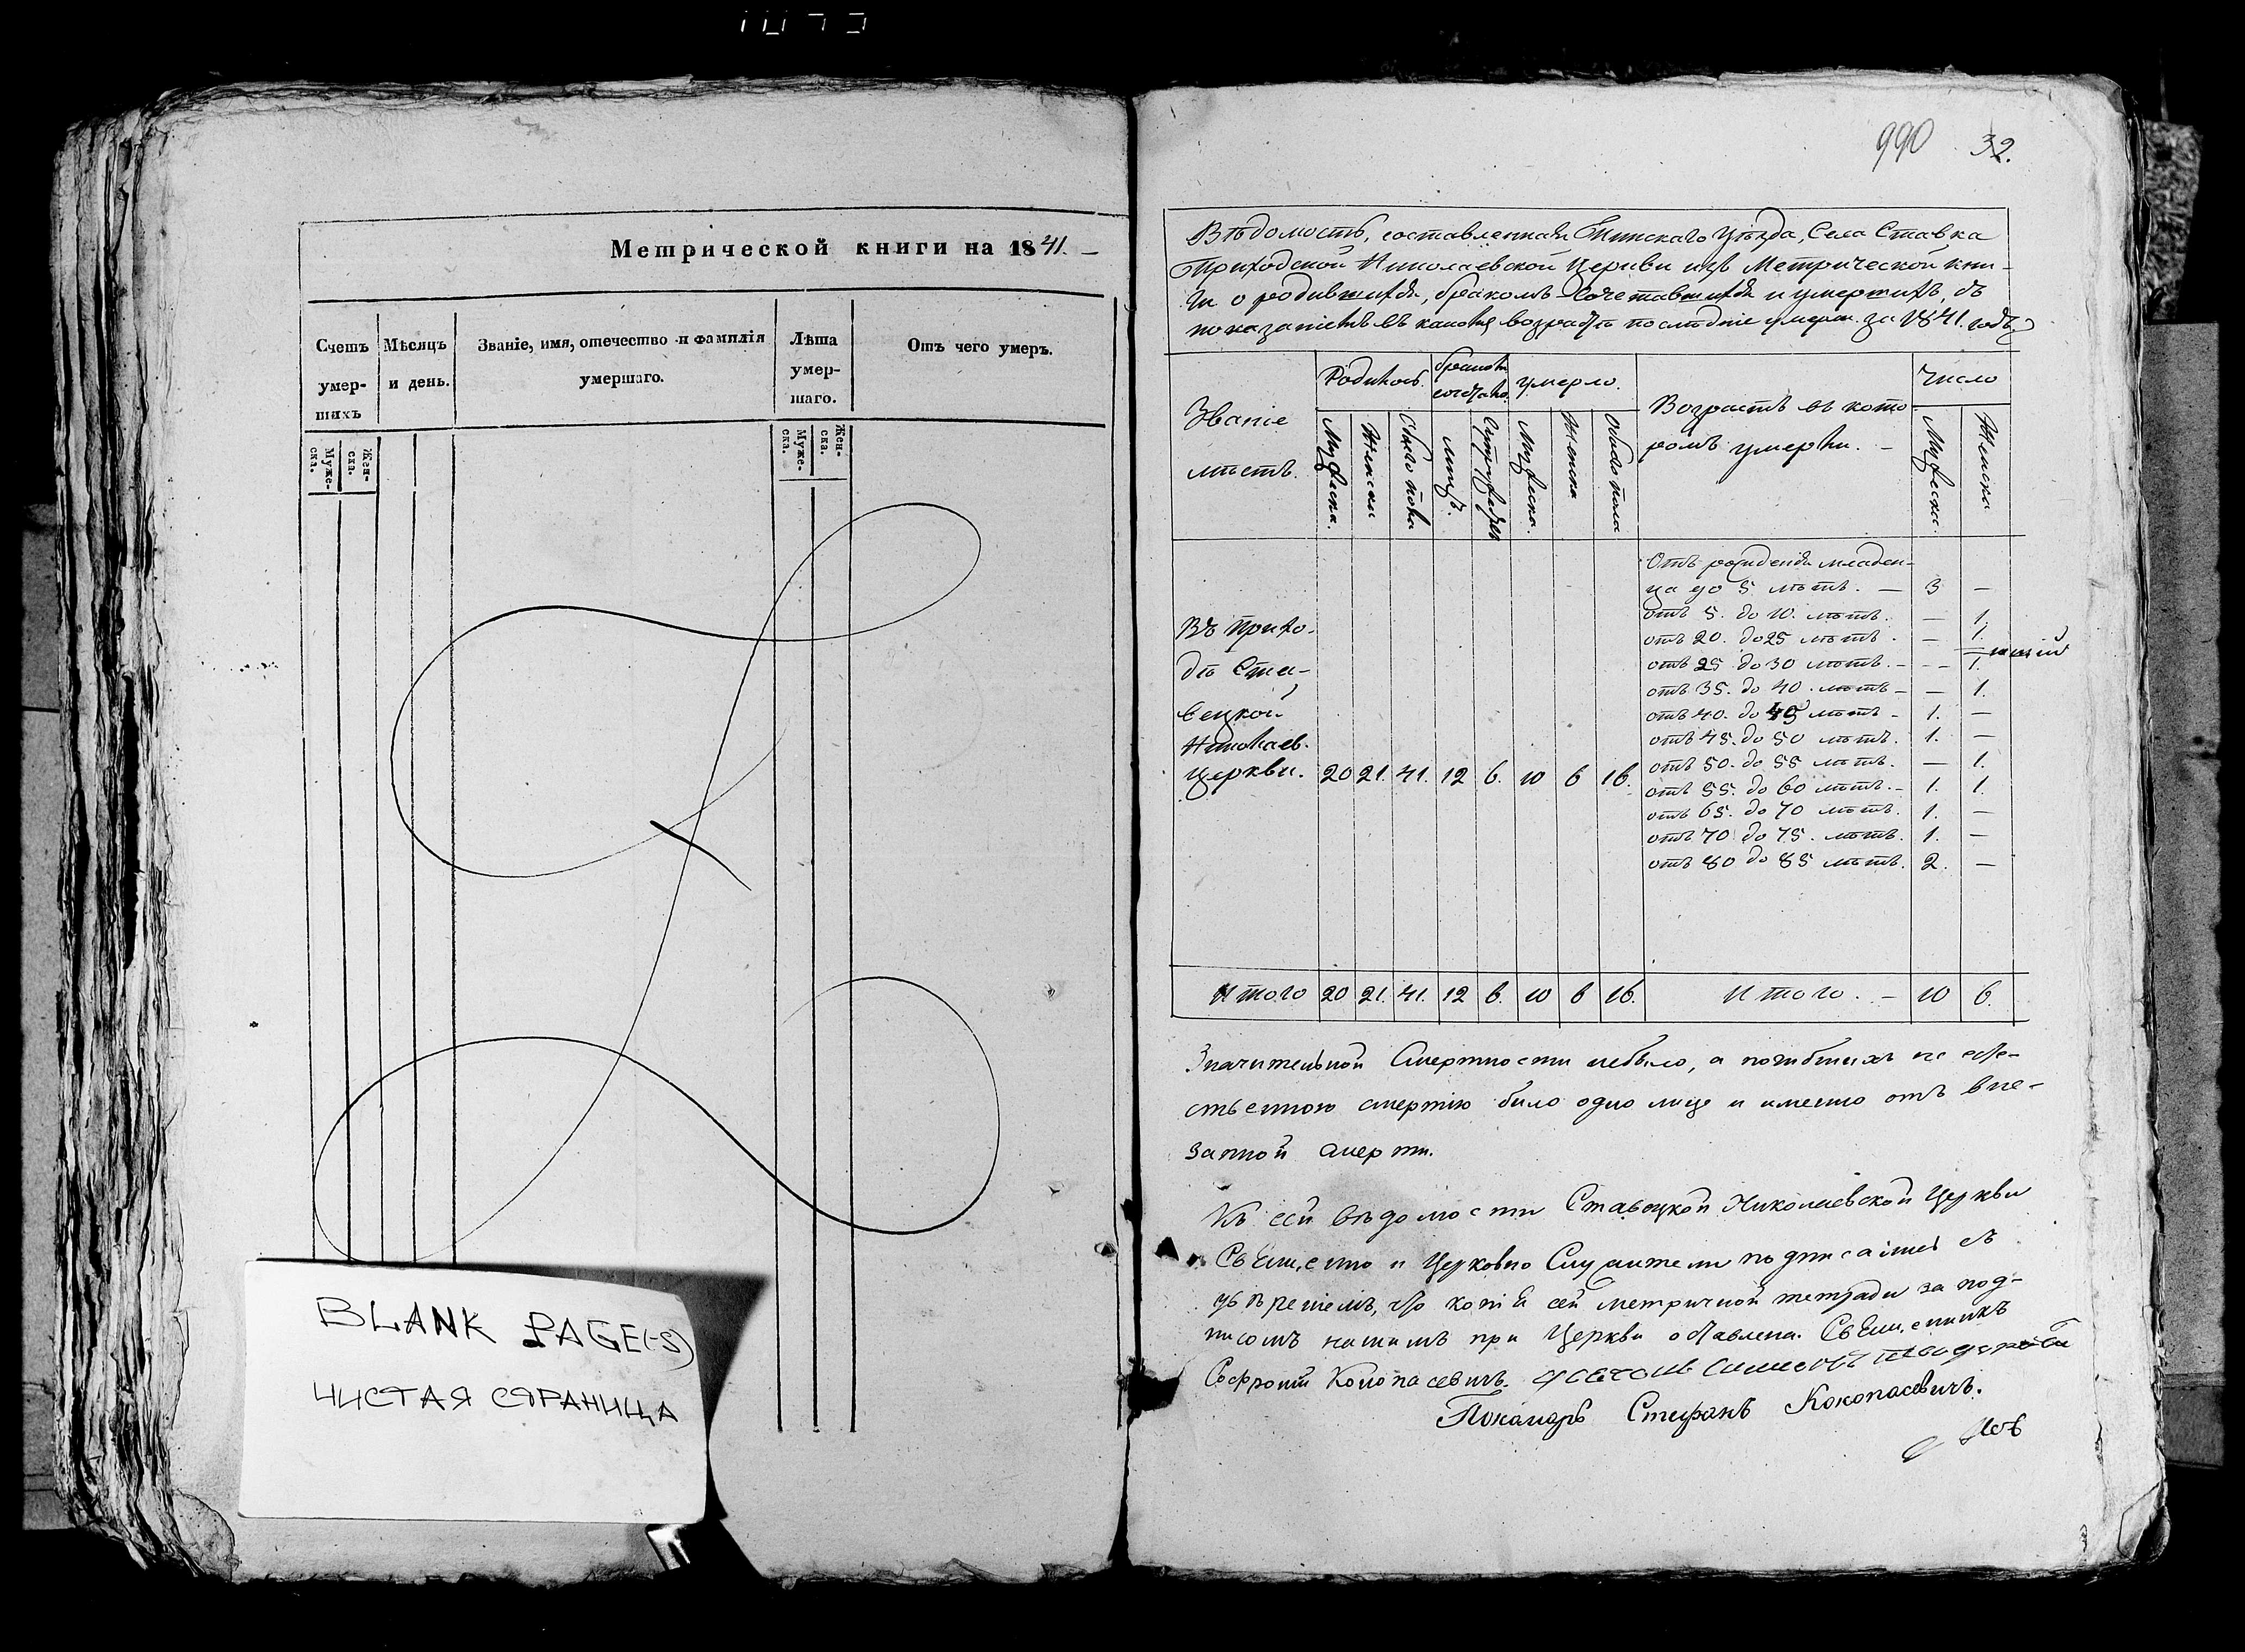 Метрической книги на 1841.
Счетъ умер-шихъ
Мѣсяцъ и день.
Званіе, имя, отечество и фамилія умершаго.
Лѣта умер-шаго.
Отъ чего умеръ.
Муже-ска.
Жен-ска.
Муже-ска.
Жен-ска.
BLANK PAGE(-S)
ЧИСТАЯ СТРАНИЦА
990 32.
Вѣдомость, составленная Пинскаго Уѣзда, Села Ставка
Приходской Николаевской Церкви изъ Метрической кни-
ги о родившихся, бракомъ сочетавшихся и умершихъ, съ
показаніемъ въ какомъ возрастѣ послѣдніе умерли за 1841. годъ
Званіе мѣстъ.
Родилось.
умерло.
Возрастъ въ кото-ромъ умерли. —
Число
Мужеска.
Женска
Обоего пола
лицъ.
Мужеска.
Женска
Обоего пола
Мужеска
Женска
Отъ рожденія младен-
ца до 5 лѣтъ. — 3 —
отъ 5. до 10. лѣтъ. — 1.
отъ 20. до 25 лѣтъ. — 1.
отъ 25 до 30 лѣтъ. — 1.
отъ 35. до 40. лѣтъ — 1.
отъ 40. до 45 лѣтъ 1. —
отъ 45. до 50 лѣтъ. 1. —
отъ 50. до 55 лѣтъ. — 1.
отъ 55. до 60 лѣтъ. 1. 1.
отъ 65. до 70 лѣтъ. 1. —
отъ 70 до 75. лѣтъ. 1. —
отъ 80 до 85 лѣтъ. 2. —
Въ Прихо-
дѣ Ста-
вецкой
Николаев.
Церкви. 20 21. 41. 12 6. 10 6 16.
Итого 20 21. 41. 12 6. 10 6 16. Итого. — 10 6.
Значительной Смертности небыло, а погибшихъ не есте-
ственною смертію было одно лице и именно отъ вне-
запной смерти.
Къ сей вѣдомости Ставецкой Николаевской Церкви
Священно и Церковно Служители подписались съ
увѣреніемъ, что копія сей метричной тетради за под-
писомъ нашимъ при Церкви оставлена. Священникъ
Софроній
Пономарь Стефанъ Кокопасевичъ.